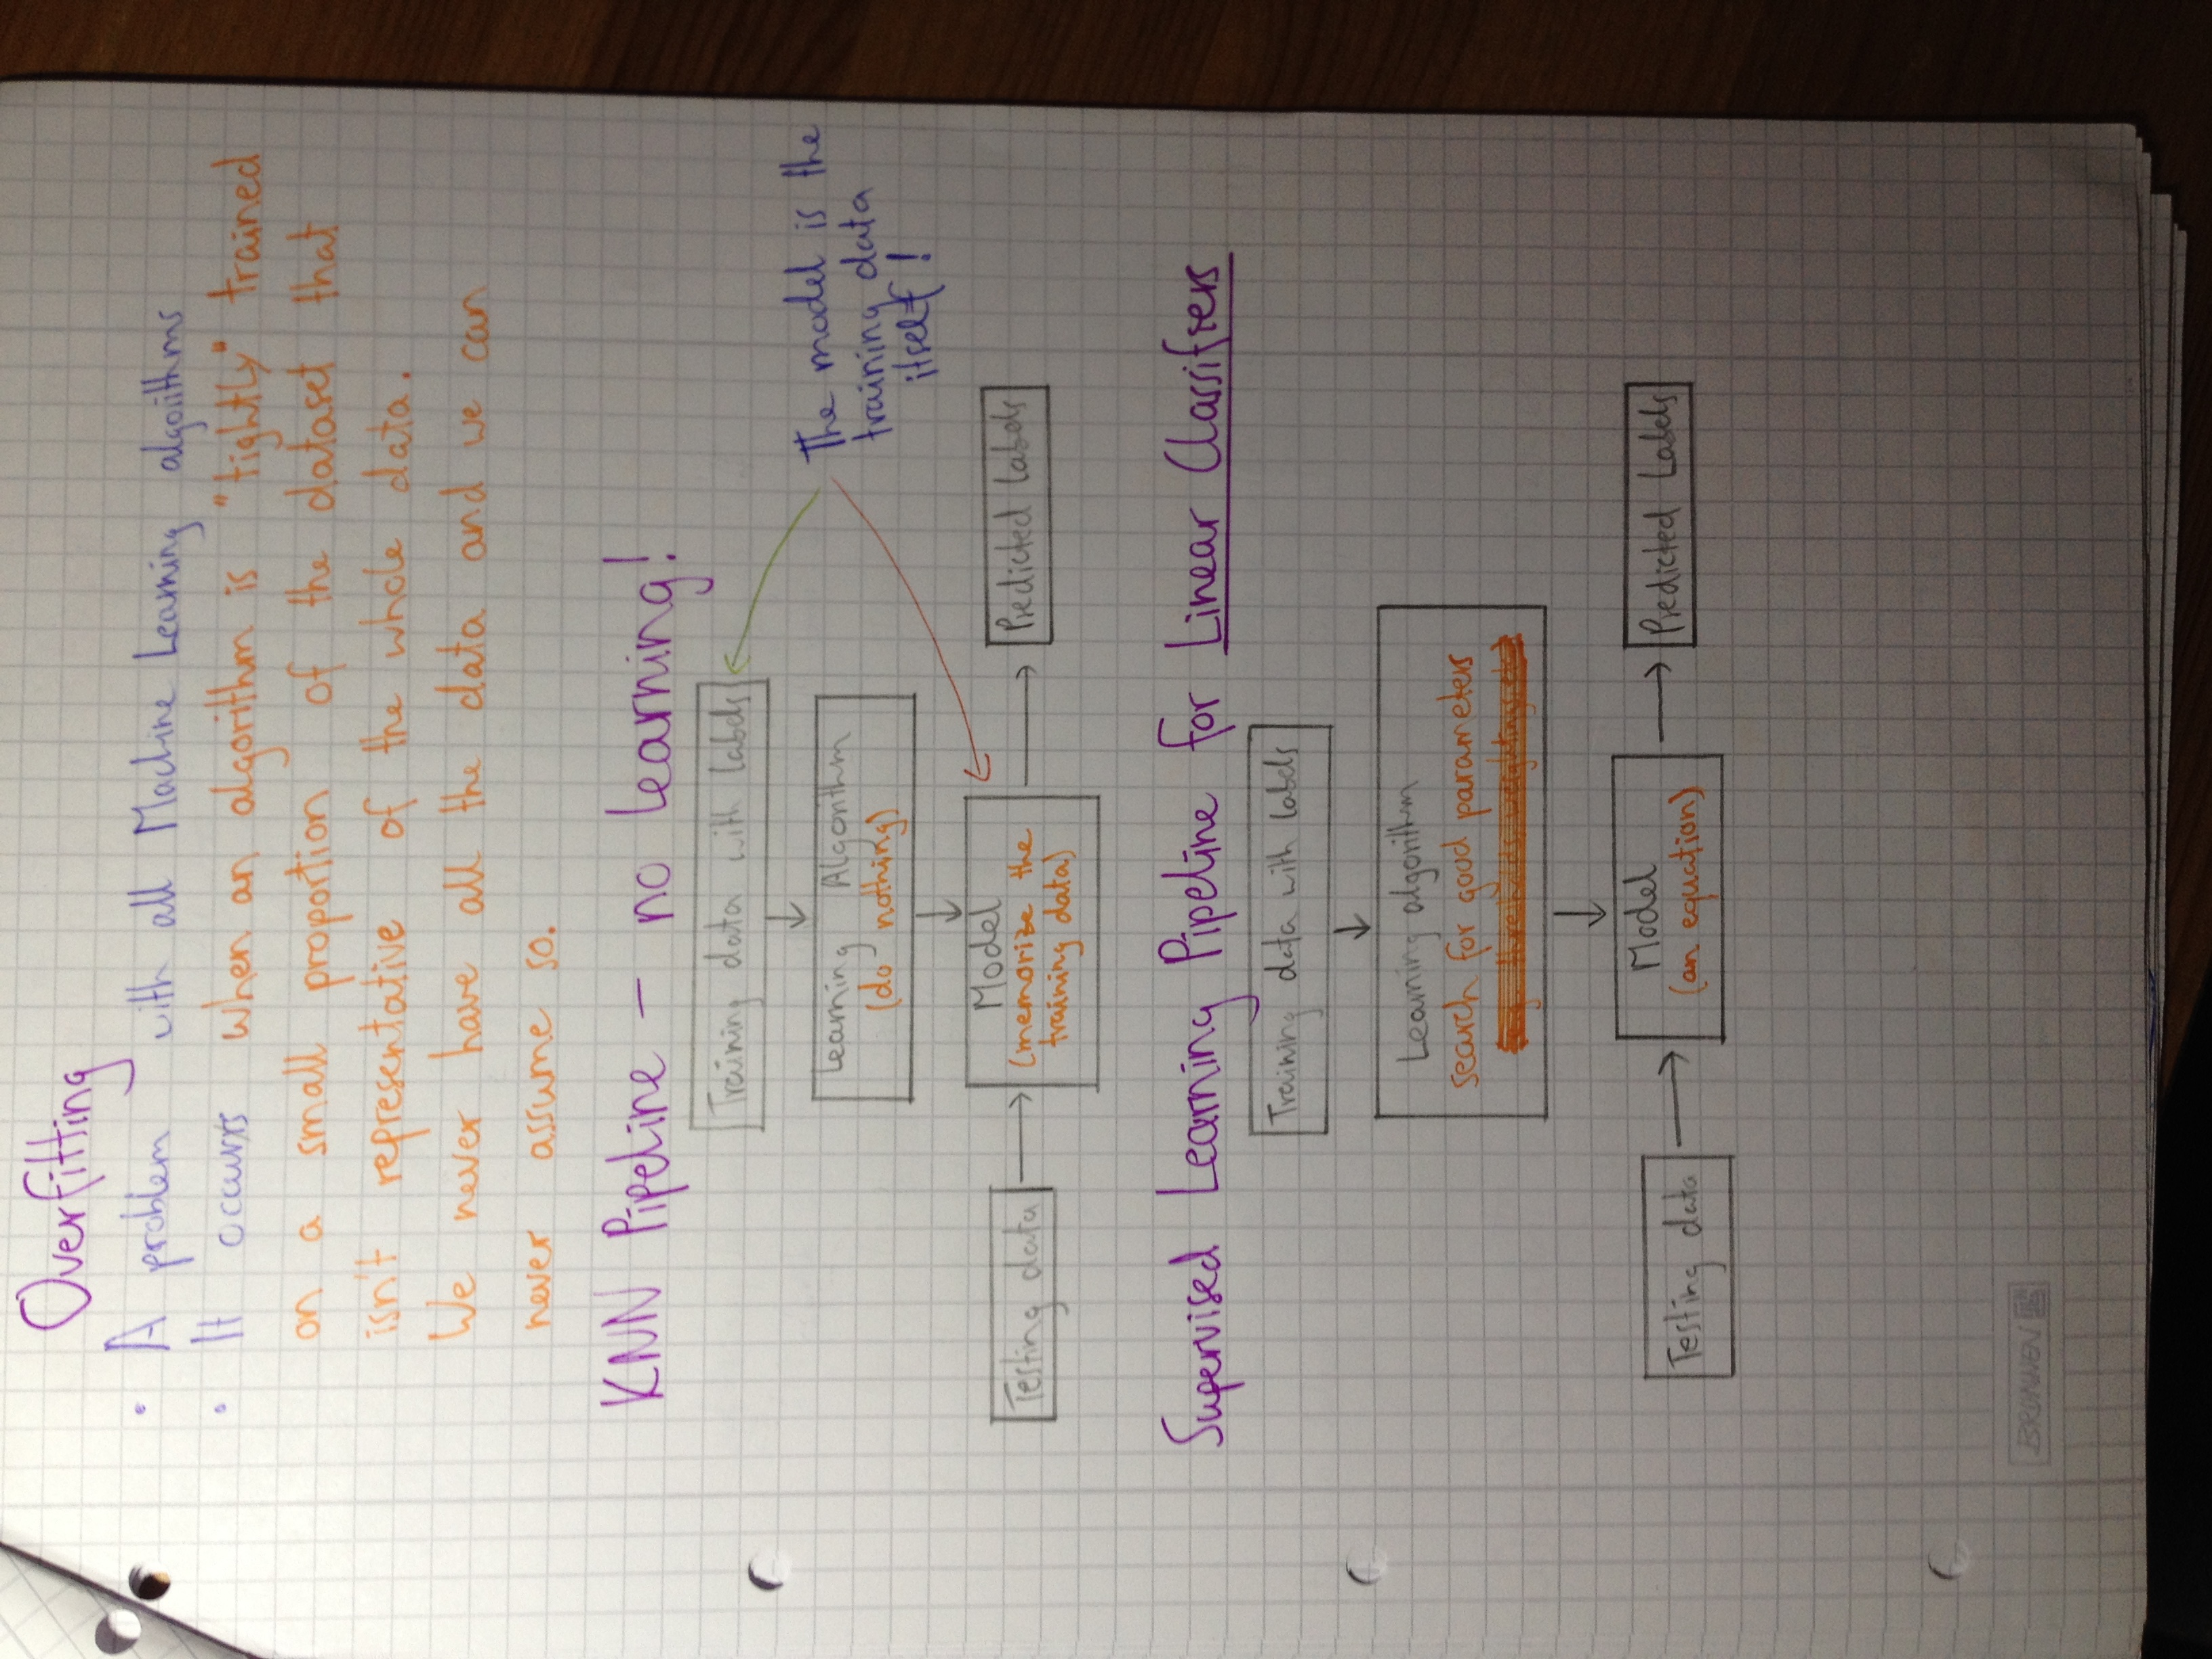 Overfitting
• A problem with all Machine Learning algorithms
• It occurs when an algorithm is "tightly" trained
on a small proportion of the dataset that
isn't representative of the whole data.
We never have all the data and we can
never assume so.
KNN Pipeline - no learning!
Training data with labels
Learning Algorithm
(do nothing)
The model is the
training data
itself!
Testing data
Model
(memorize the
training data)
Predicted labels
Supervised Learning Pipeline for Linear Classifiers
Training data with labels
Learning algorithm
search for good parameters
(e.g. thresholds, weightings, etc)
Testing data
Model
(an equation)
Predicted Labels
BRUNNEN